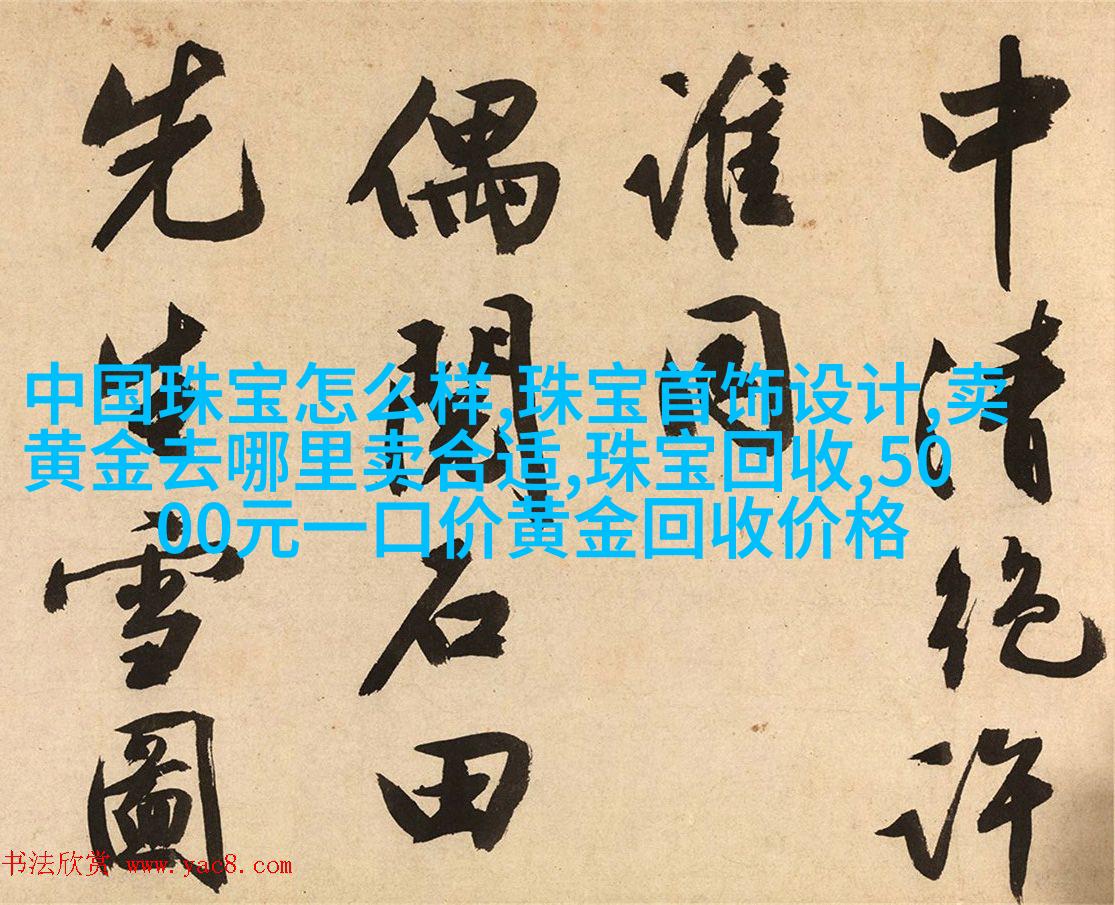 中清絶許
誰同
偶閱石田
先生雪圖
中国珠宝怎么样,珠宝首饰设计,卖
黄金去哪里卖合适,珠宝回收,50
00元一口价黄金回收价格
书法欣赏 www.yac8.com